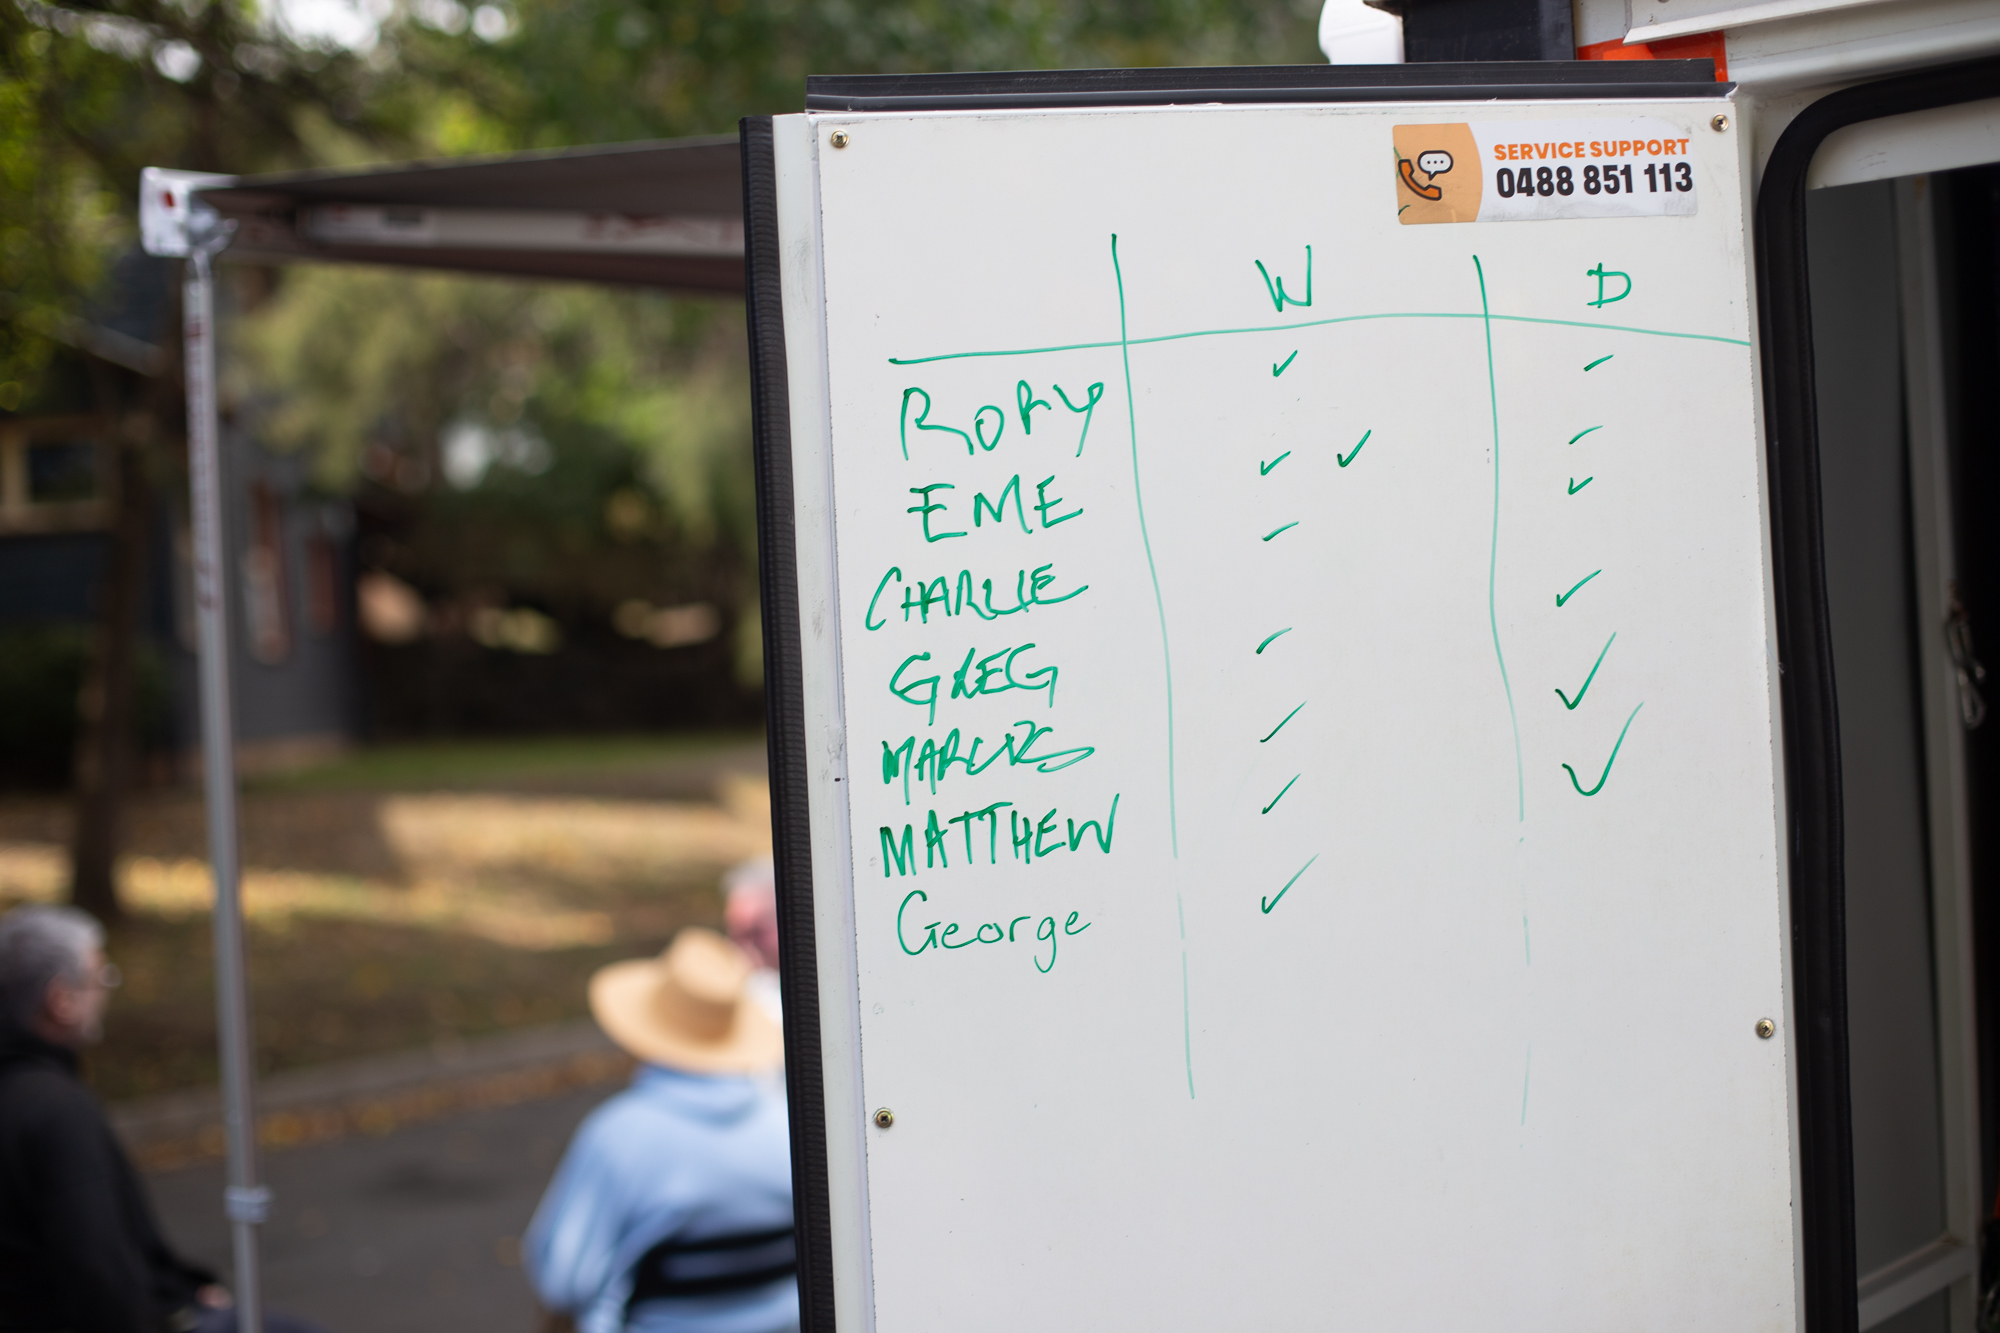 SERVICE SUPPORT
0488 851 113
W D
RORY ✓ ✓
EME ✓ ✓ ✓ ✓
CHARLIE ✓ ✓
GREG ✓ ✓
MARCUS ✓ ✓
MATTHEW ✓
George ✓